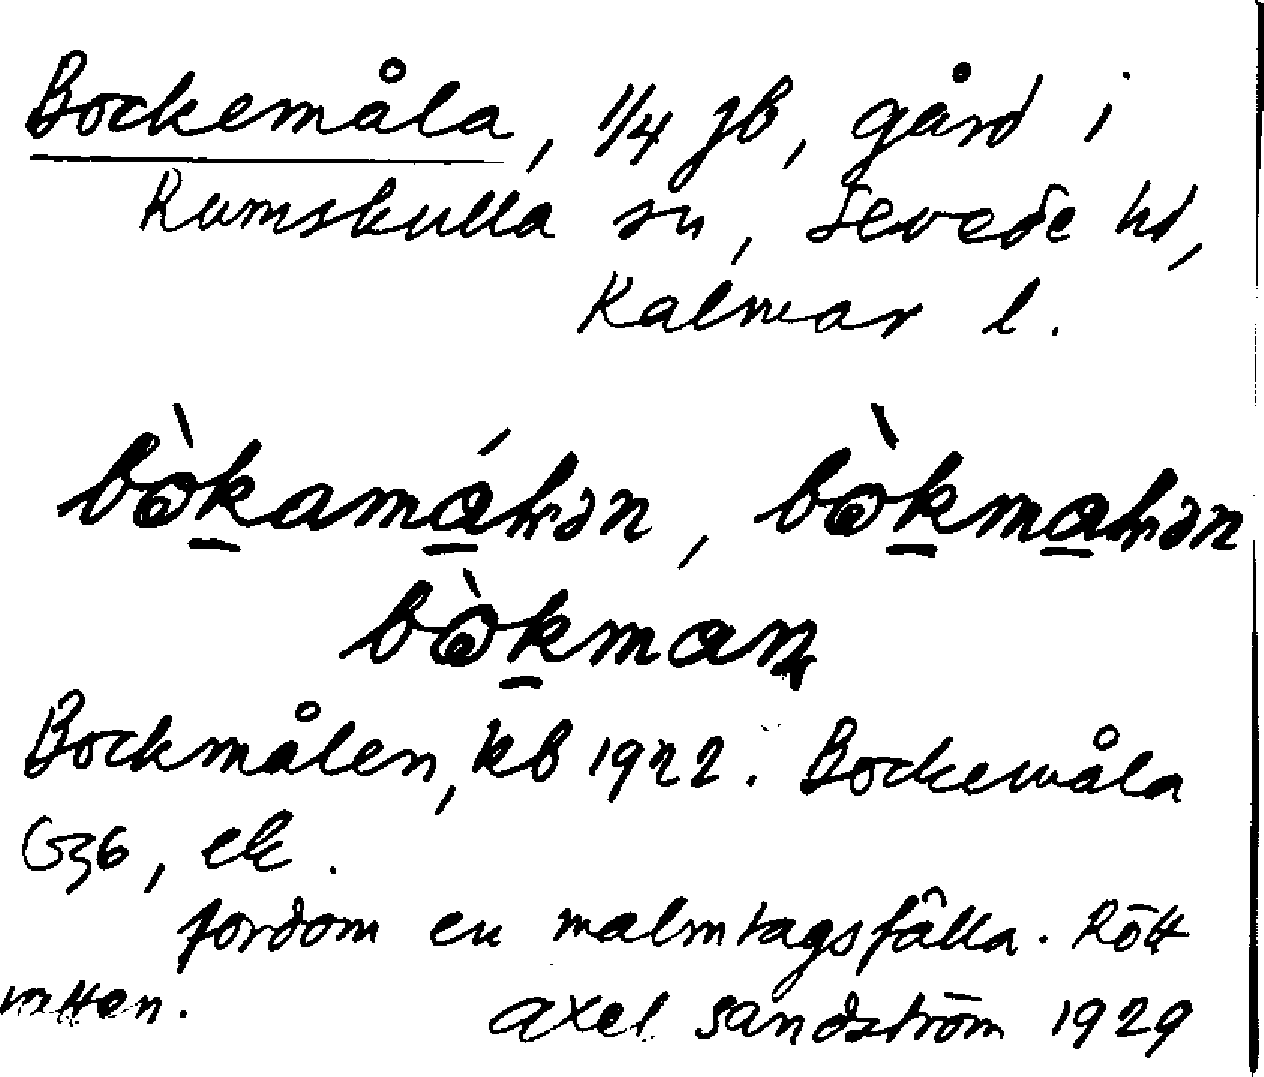 Bockemåla, 1/4 jb, gård i
Rumskulla sn, Sevede hd,
Kalmar l.
Bockmålen, kb 1922. Bockemåla
G36, ek.
fordom en malmtagsfälla. Rött
vatten.
Axel Sandström 1929